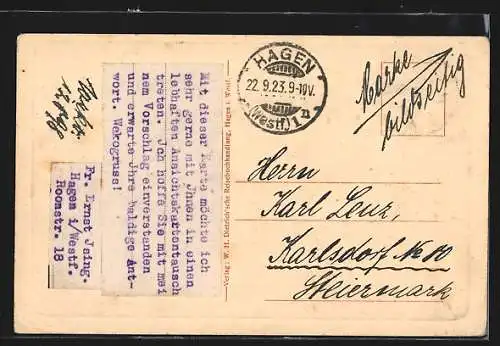 Mit dieser Karte möchte ich
sehr gerne mit Jhnen in einen
lebhaften Ansichtskartentausch
treten. Jch hoffe Sie mit mei
nem Vorschlag einverstanden
und erwarte Jhre baldige Ant-
wort. Wekogruss!
Fr. Ernst Jsing.
Hagen i/Westf.
Roonstr. 18
Verlag: W. H. Dietrich'sche Reisebuchhandlung, Hagen i. Westf.
HAGEN
22.9.23.9-10V.
(Westf.) 1 n
Marke
bildseitig
Herrn
Karl Lenz,
Karlsdorf No 80
Steiermark